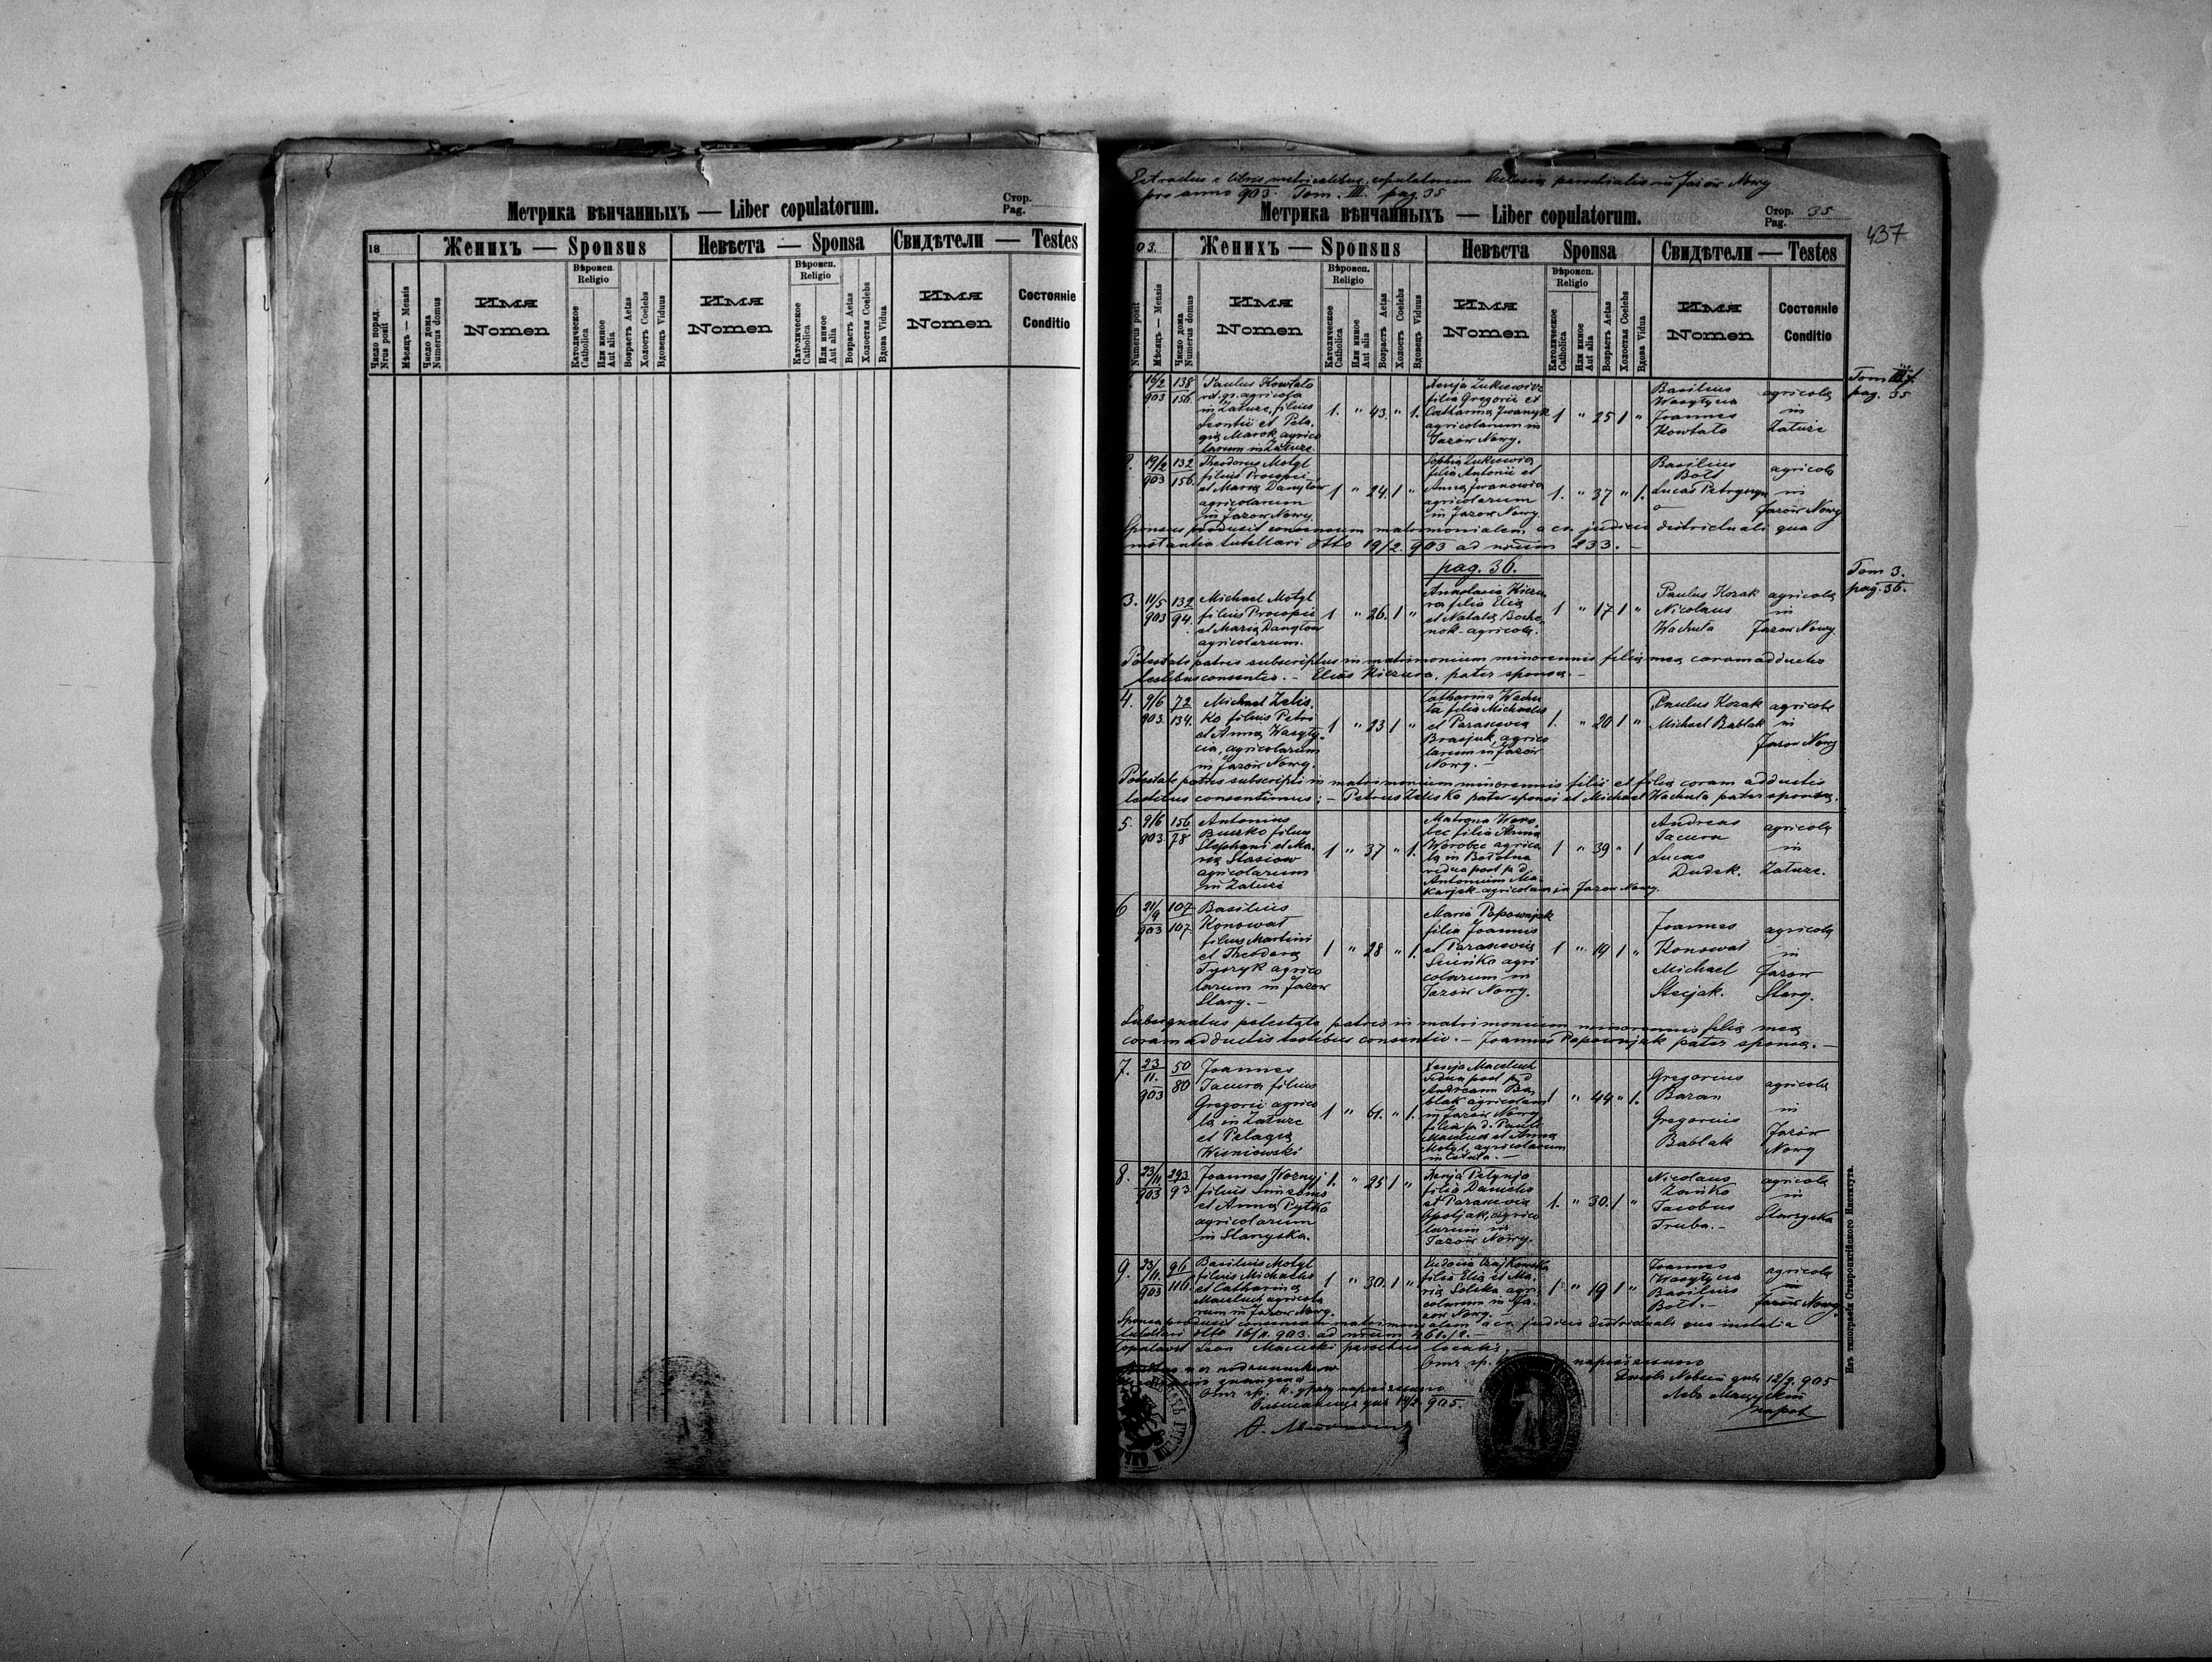 Метрика вѣнчанныхъ — Liber copulatorum.
Стор.
Pag.
18
Женихъ — Sponsus
Невѣста — Sponsa
Свидѣтели — Testes
Число поряд.
Nrus posit
Мѣсяцъ — Mensis
Число дома
Numerus domus
Имя
Nomen
Вѣроисп.
Religio
Католическое
Catholica
Или инное
Aut alia
Возрастъ Aetas
Холостъ Coelebs
Вдовецъ Viduus
Имя
Nomen
Вѣроисп.
Religio
Католическое
Catholica
Или инное
Aut alia
Возрастъ Aetas
Холостая Coelebs
Вдова Vidua
Имя
Nomen
Состояніе
Conditio
Extractus e libris metricalibus copulatorum Ecclesiae parochialis in Jazów Nowy
pro anno 903. Tom. III. pag. 35
Метрика вѣнчанныхъ — Liber copulatorum.
Стор.
Pag. 35
437
03.
Женихъ — Sponsus
Невѣста Sponsa
Свидѣтели — Testes
Numerus posit
Мѣсяцъ — Mensis
Число дома
Numerus domus
Имя
Nomen
Вѣроисп.
Religio
Католическое
Catholica
Или инное
Aut alia
Возрастъ Aetas
Холостъ Coelebs
Вдовецъ Viduus
Имя
Nomen
Вѣроисп.
Religio
Католическое
Catholica
Или инное
Aut alia
Возрастъ Aetas
Холостая Coelebs
Вдова Vidua
Имя
Nomen
Состояніе
Conditio
Tom III
pag. 35
16/2 903 138/156
Paulus Kowtało
agricola
in Załuże, filius
Leontii et Pela-
gia Marok, agrico
larum in Załuże.
1. " 43. " 1.
Xenja Łukiewicz
filia Gregorii et
Catharina Iwanyk
agricolarum in
Jazów Nowy.
1 " 25 1 "
Basilius
Wasylycia
Joannes
Kowtało
agricolae
in
Załuże
19/2 903 132/156.
Theodorus Motyl
filius Procopii
et Maria Danyłów
agricolarum
in Jazow Nowy.
1 " 24. 1 "
Sophia Łukiewicz
filia Antonii et
Anna Iwanowicz
agricolarum
in Jazow Nowy.
1. " 37 " 1.
Basilius
Bołt
Lucas Petryszyn
agricolae
in
Jazów Nowy
Sponsus produxit consensum matrimonialem a cr. judicio districtuali qua
instantia tutellari dtto 19/2. 903 ad nrum 233. —
pag. 36.
Tom 3.
pag. 36.
3. 11/5 903 132/94.
Michael Motyl
filius Procopii
et Maria Danyłow
agricolarum.
1 " 26. 1 "
Anastasia Kiczu
ra filia Elia
et Natalia Boche-
nok agricola.
1 " 17 1 "
Paulus Kozak
Nicolaus
Wachuta
agricolae
in
Jazow Nowy
Potestate patris subscriptus in matrimonium minorennis filiae meae coram adductis
testibus consentio. — Elias Kiczura, pater sponsae. —
4. 9/6 903. 72/134.
Michael Zelis
ko filius Petri
et Anna Wasyly-
cia, agricolarum
in Jazow Nowy.
1 " 23 1 "
Catharina Wachu
ta filia Michaelis
et Parascevia
Brasjuk, agrico
larum in Jazów
Nowy. —
1. " 20 1. "
Paulus Kozak
Michael Bablak
agricolae
in
Jazow Nowy
Potestate patris subscripti in matrimonium minorennis filii et filiae coram adductis
testibus consentimus; — Petrus Zelisko pater sponsi et Michael Wachuta pater sponsae.
5. 9/6 903 156/78
Antonius
Buczko filius
Stephani et Ma-
ria Stasiow
agricolarum
in Załuże
1 " 37 " 1.
Matrona Woro
bec filia Anna
Worobec agrico
la in Bołotna
vidua post p. d.
Antonium Ma-
karjek agricolam in Jazow Nowy.
1 " 39 " 1
Andreas
Jacura
Lucas
Dudek.
agricolae
in
Załuże.
6 21/9 903 107/107.
Basilius
Konowat
filius Martini
et Theodora
agrico
larum in Jazow
Stary. —
1 " 28 " 1.
Maria Popownjak
filia Joannis
et Parascevia
Seńko agri
colarum in
Jazów Nowy.
1 " 19 1 "
Joannes
Konowat
Michael
Stecjak.
agricolae
in
Jazow
Stary.
Subsignatus potestate patris in matrimonium minorennis filiae meae
coram adductis testibus consentio. — Joannes Popownjak pater sponsae. —
7. 23/11. 903 50/80
Joannes
Jacura filius
Gregorii agrico
la in Załuże
et Pelagia
Wisniowski
1 " 61. " 1.
Xenja Maceluch
vidua post p. d.
Andream Ba
blak agricolam
in Jazów Nowy
filia p. d. Pauli
Maceluch et Anna
Motyl agricolarum
in Cetula. —
1 " 44 " 1.
Gregorius
Baran
Gregorius
Bablak
agricolae
in
Jazów
Nowy
8. 23/11 903 293/93
Joannes Woznyj
filius Simeonis
et Anna Pytko
agricolarum
in Starzyska.
1. " 25 1 "
Xenja Petynjo
filia Danielis
et Parascevia
agrico
larum in
Jazów Nowy.
1. " 30. 1 "
Nicolaus
Zańko
Jacobus
Truba. —
agricola
in
Starzyska
9. 23/11. 903 96/116
Basilius Motyl
filius Michaelis
et Catharina
Maceluch agricola
rum in Jazow Nowy.
1 " 30. 1 "
Eudocia
filia Elia et Ma-
ria Solska agri-
colarum in Ja-
zow Nowy. —
1 " 19 1 "
Joannes
Wasylycia
Basilius
Bołt. —
agricolae
in
Jazów Nowy
Sponsa produxit consensum matrimonialem a cr. judicio districtuali qua instatia
tutellari dtto 16/11. 903. ad nrum
Copulavit Leon Maciuski parochus localis.
12/2. 905
905.
Изъ типографіи Ставропигійского Института.